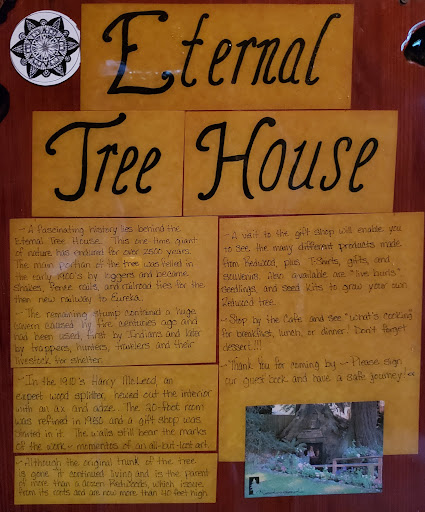 Eternal
Tree House
~ A fascinating history lies behind the
Eternal Tree House. This one-time giant
of nature has endured for over 2500 years.
The main portion of the tree was felled in
the early 1900's by loggers and became
shakes, fence rails, and railroad ties for the
then new railway to Eureka.
~ The remaining stump contained a huge
cavern caused by fire centuries ago and
had been used, first by Indians and later
by trappers, hunters, travelers and their
livestock for shelter.
~ In the 1910's Harry McLeod, an
expert wood splitter, hewed out the interior
with an ax and adze. The 20-foot room
was refined in 1950 and a gift shop was
started in it. The walls still bear the marks
of the work ~ mementos of an all-but-lost art.
~ Although the original trunk of the tree
is gone it continued living and is the parent
of more than a dozen Redwoods, which
from its roots and are now more than 40 feet high.
~ A visit to the gift shop will enable you
to see the many different products made
from Redwood, plus T-Shirts, gifts, and
souvenirs. Also available are "live burls",
seedlings, and seed kits to grow your own
Redwood tree.
~ Stop by the Cafe and see "what's cooking"
for breakfast, lunch, or dinner. Don't forget
dessert!!!
~ Thank You for coming by ~ Please sign
our guest book and have a safe journey.